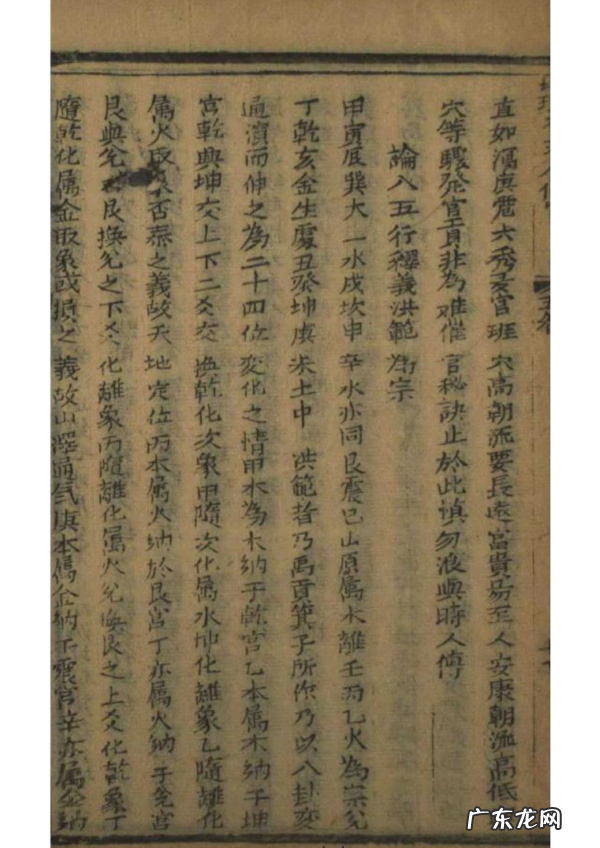 直如瀉庚 六秀 宮班 穴高朝流要長遠富貴易至人安康朝流高低
穴等驟發官貢非為难催官秘訣止於此慎勿浪與時人傳
論八五行釋義洪範為宗
甲寅辰巽大一水戌坎申辛水亦同艮震巳山原属木離壬丙乙火為宗兊
丁乾亥金生處丑癸坤庚未土中洪範昔乃禹貢箕子所作乃以八卦変
通演而伸之為二十四位变化之情甲本為木納于乾宮乙本属木納于坤
宮乾與坤交上下二爻交換乾化次象甲隨次化属水坤化離象乙隨離化
属火取 否泰之義故天地定位丙本属火納於艮宮丁亦属火納于兊宮
艮與兊 艮換兊之下爻化離象丙隨離化属火兊換艮之上爻化乾象丁
隨乾化属金取象或損之義故山澤通气庚本属金納于震宮辛亦属金納
广东龙网